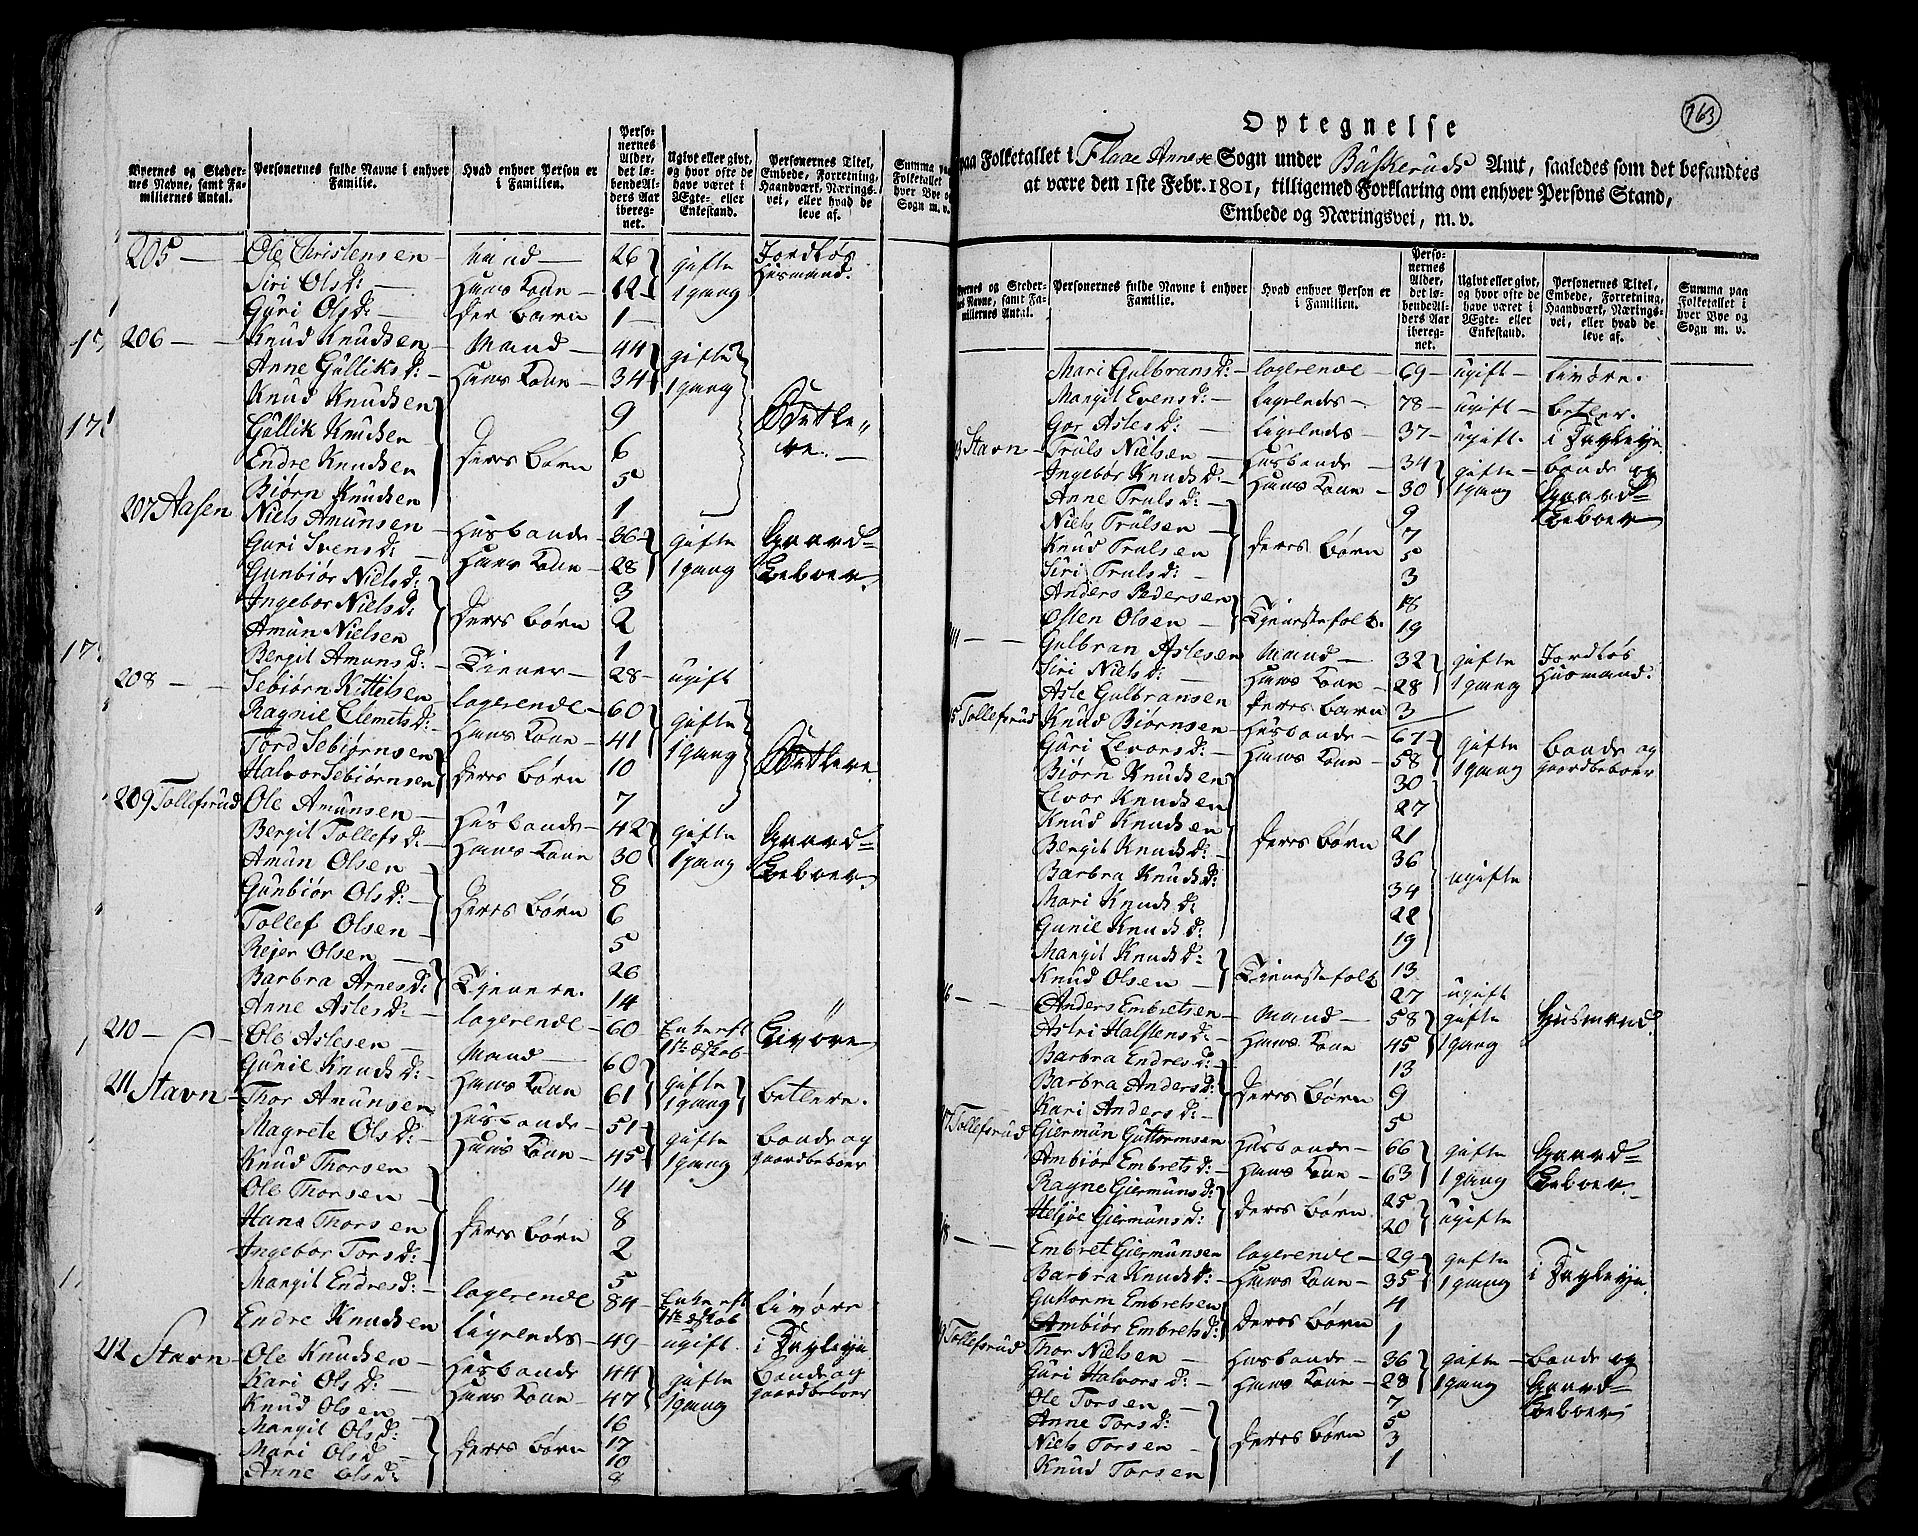 Byernes og Steder-
nes Navne, samt Fa-
miliernes Antal.
Personernes fulde Navne i enhver
Familie.
Hvad enhver Person er
i Familien.
Perso-
nernes
Alder,
det lø-
bende Al-
ders Aar
iberegn-
net.
Ugivt eller givt,
og hvor ofte de
have været i
Ægte- eller
Enkestand.
Personernes Titel,
Embede, Forretning,
Haandværk, Nærings-
vei, eller hvad de
leve af.
Summa paa
Folketallet i
hver Bye og
Sogn m. v.
205 — Ole Christensen — Mand — 26 gifte Jordløs
Siri Olsd: — Hans Kone — 1 gang Husmand.
Guri Olsd: — Der Barn 1 —
206 — Knud Knudsen — Mand — 44 gifte
Anne Gulliksd: — Hans Kone — 34 1 gang
Knud Knudsen 9
Gullik Knudsen Deres Børn 6
Endre Knudsen 5
Biørn Knudsen 1
207 Aasen Niels Amunsen — Husbonde — 36 gifte Gaard=
Guri Svensd: — Hans Kone — 28 1 gang beboer.
Gunbiør Nielsd: 3
Ingebor Nielsd: Deres Børn 2
Amun Nielsen 1
Bergit Amunsd: — Tiener — 28 — ugift
208 — Sebiørn Kittilsen logerende — 60 gifte
Ragnil Clemetsd: — Hans Kone — 41 1 gang
Tord Sebiørnsen Deres Børn 10
Halvor Sebiørnsen 7
209 Tollefsrud Ole Amunsen — Husbonde — 42 gifte Gaard=
Bergit Tollefsd: — Hans Kone 30 1 gang beboer.
Amun Olsen — 8
Gunbiør Olsd: — Deres Børn 6
Tollef Olsen — 5
Rejer Olsen —
Barbra Arnesd: Tjenere. 26
Anne Aslesd: — 14
210 — Ole Aslesen — logerende — 60 Livøre
Gunil Knudsd: — Mand — 60 gifte betlere.
211 Stavn — Thor Amunsen Hans Kone 61 1 gang
Magrete Olsd: — Husbonde — 51 gifte bonde og
Knud Thorsen Hans Kone — 45 1 gang gaardbeboer
Ole Thorsen — 14
Hans Thorsen Deres Børn 8
Ingebor Torsd: 2
Margit Endresd: — logerende 5
84 — Livøre
Endre Knudsen Ligeledes — 49 ugift.
212 Stavn — Ole Knudsen — Husbonde 44 gifte bonde og
Kari Olsd: — Hans Kone — 47 1 gang gaardbeboer
Knud Olsen — 16
Margit Olsd: Deres Børn 17
Mari Olsd — 10
Anne Olsd: 8
163
Optegnelse
paa Folketallet i Flaae Annexe Sogn under Buskeruds Amt, saaledes som det befandtes
at være den 1ste Febr. 1801, tilligemed Forklaring om enhver Persons Stand,
Embede og Næringsvei, m. v.
Byernes og Steder-
nes Navne, samt Fa-
miliernes Antal.
Personernes fulde Navne i enhver
Familie.
Hvad enhver Person er
i Familien.
Perso-
nernes
Alder,
det lø-
bende Al-
ders Aar
iberegn-
net.
Ugivt eller givt,
og hvor ofte de
have været i
Ægte- eller
Enkestand.
Personernes Titel,
Embede, Forretning,
Haandværk, Nærings-
vei, eller hvad de
leve af.
Summa paa
Folketallet i
hver Bye og
Sogn m. v.
Mari Gulbransd: — logerende — 69 — ugift — Livøre.
Margit Evensd: — Ligeledes — 78 — ugift — betler.
Gor Aslesd: — Ligeledes — 37 — ugift.
Stavn — Truls Nielsen — Husbonde — 34 gifte — bonde og
Ingebør Knudsd: — Hans Kone — 30 1 gang Gaard=
Anne Trulsd: 9 beboer
Niels Trulsen — 7
Knud Trulsen Deres Børn 5
Siri Trulsd: — 3
Anders Pedersen 18
Osten Olsen — Tjenestefolk. 19
Gulbran Aslesen Mand — 32 gifte Jordløs
Siri Nielsd: — Hans Kone — 28 1 gang Husmand.
Asle Gulbransen Deres Barn 3
Tollefsrud Knud Biørnsen — Husbonde — 67 gifte bonde og
Guri Levorsd: — Hans Kone — 58 1 gang gaardbeboer
Biørn Knudsen 30
Levor Knudsen 27
Knud Knudsen Deres Børn 21
Bergit Knudsd: — 36
Barbra Knudsd: 34 ugifte
Mari Knudsd: 22
Gunil Knudsd: 19
Margit Knudsd: — 13
Knud Olsen — Tjenestefolk 27 ugift
Anders Embretsen — Mand — 58 gifte Husmand
Astri Halstensd: — Hans Kone 45 1 gang
Barbra Endresd: — 13
Barbra Andersd: Deres Børn 9
Kari Andersd: — 5
Tollefsrud Giermun Guttormsen Husbonde — 66 gifte Gaard=
Ambiør Embretsd: — Hans Kone — 63 1 gang beboer. —
Ragne Giermunsd: Deres Børn 25
Heljøe Giermunsd: 20 ugifte
Embret Giermunsen logerende — 29 gifte
Barbra Knudsd: — Hans Kone — 35 1 gang
Guttorm Embretsen 4
Ambiør Embretsd: Deres Børn 1
Tollefsrud Thor Nielsen — Husbonde — 36 gifte — bonde og
Guri Halvorsd: — Hans Kone — 28 1 gang Gaard=
Ole Torsen — 7 beboer
Anne Torsd: 5
Niels Torsen — Deres Børn 3
Knud Torsen 1